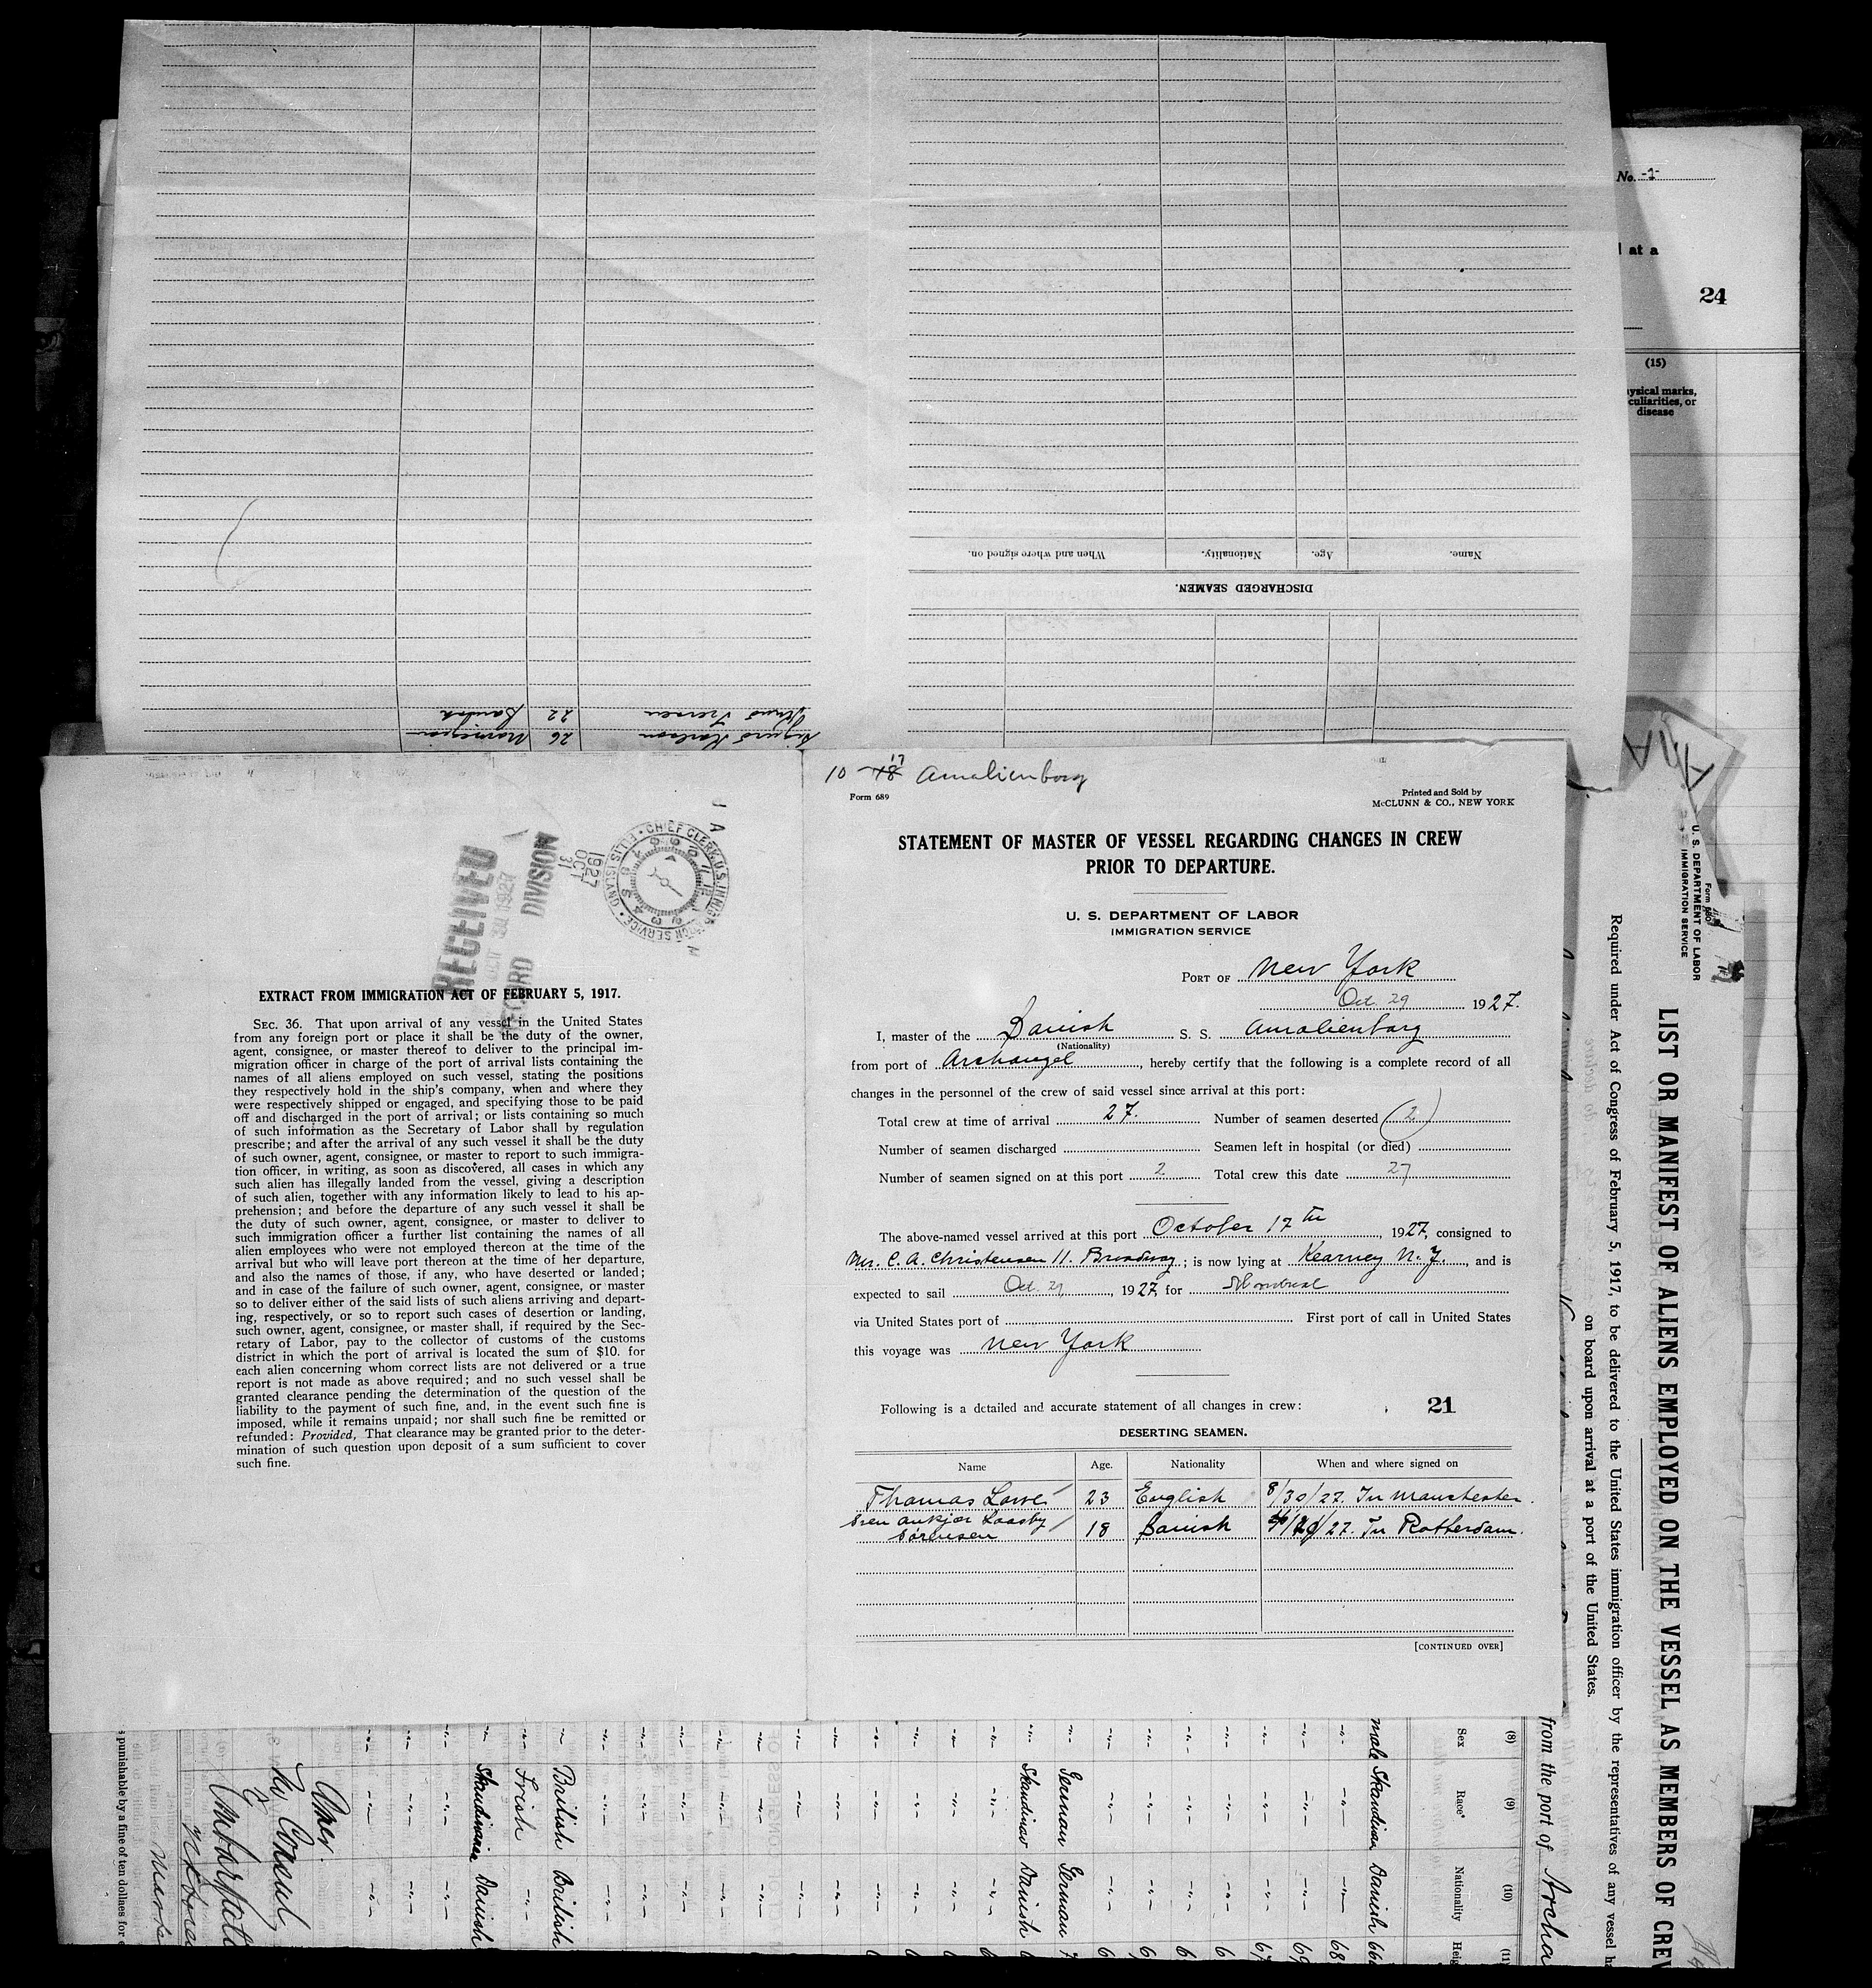 No. -1-
l at a
24
(15)
ysical marks,
culiarities, or
disease
When and where signed on.
Nationality.
Age.
Name.
DISCHARGED SEAMEN.
22
26
10 17 Amalienborg
Form 689
Printed and Sold by
McCLUNN & CO., NEW YORK
STATEMENT OF MASTER OF VESSEL REGARDING CHANGES IN CREW
PRIOR TO DEPARTURE.
U. S. DEPARTMENT OF LABOR
IMMIGRATION SERVICE
PORT OF New York
Oct. 29 1927.
I, master of the Danish S. S. Amalienborg
(Nationality)
from port of Archangel, hereby certify that the following is a complete record of all
changes in the personnel of the crew of said vessel since arrival at this port:
Total crew at time of arrival 27. Number of seamen deserted (2)
Number of seamen discharged Seamen left in hospital (or died)
Number of seamen signed on at this port 2 Total crew this date 27
The above-named vessel arrived at this port October 17th, 1927, consigned to
Mr. C. A. Christensen 11. Broadway; is now lying at Kearney N. J., and is
expected to sail Oct. 29, 1927, for Montreal
via United States port of First port of call in United States
this voyage was New York
Following is a detailed and accurate statement of all changes in crew:
21
DESERTING SEAMEN.
Name Age. Nationality When and where signed on
Thomas Lowe 23 English 8/30/27. In Manchester.
Sven Ankjær Laasby
Sörensen 18 Danish /27. In Rotterdam.
[CONTINUED OVER]
RECEIVED
OCT 31 1927
RECORD DIVISION
1927
OCT
31
CHIEF CLERK, U.S. IMMIGRATION SERVICE • ELLIS ISLAND •
EXTRACT FROM IMMIGRATION ACT OF FEBRUARY 5, 1917.
SEC. 36. That upon arrival of any vessel in the United States
from any foreign port or place it shall be the duty of the owner,
agent, consignee, or master thereof to deliver to the principal im-
migration officer in charge of the port of arrival lists containing the
names of all aliens employed on such vessel, stating the positions
they respectively hold in the ship's company, when and where they
were respectively shipped or engaged, and specifying those to be paid
off and discharged in the port of arrival; or lists containing so much
of such information as the Secretary of Labor shall by regulation
prescribe; and after the arrival of any such vessel it shall be the duty
of such owner, agent, consignee, or master to report to such immigra-
tion officer, in writing, as soon as discovered, all cases in which any
such alien has illegally landed from the vessel, giving a description
of such alien, together with any information likely to lead to his ap-
prehension; and before the departure of any such vessel it shall be
the duty of such owner, agent, consignee, or master to deliver to
such immigration officer a further list containing the names of all
alien employees who were not employed thereon at the time of the
arrival but who will leave port thereon at the time of her departure,
and also the names of those, if any, who have deserted or landed;
and in case of the failure of such owner, agent, consignee, or master
so to deliver either of the said lists of such aliens arriving and depart-
ing, respectively, or so to report such cases of desertion or landing,
such owner, agent, consignee, or master shall, if required by the Sec-
retary of Labor, pay to the collector of customs of the customs
district in which the port of arrival is located the sum of $10. for
each alien concerning whom correct lists are not delivered or a true
report is not made as above required; and no such vessel shall be
granted clearance pending the determination of the question of the
liability to the payment of such fine, and, in the event such fine is
imposed, while it remains unpaid; nor shall such fine be remitted or
refunded: Provided, That clearance may be granted prior to the deter-
mination of such question upon deposit of a sum sufficient to cover
such fine.
Form 680
U. S. DEPARTMENT OF LABOR
IMMIGRATION SERVICE
LIST OR MANIFEST OF ALIENS EMPLOYED ON THE VESSEL AS MEMBERS OF CREW
Required under Act of Congress of February 5, 1917, to be delivered to the United States immigration officer by the representatives of any vessel h
on board upon arrival at a port of the United States.
from the port of Archa
(8) (9) (10) (11)
Sex Race* Nationality Heig
male Skandinav Danish
German German
Skandinav Danish
British British
Irish
Skandinavien Danish
Amer.
Consul
s punishable by a fine of ten dollars for e